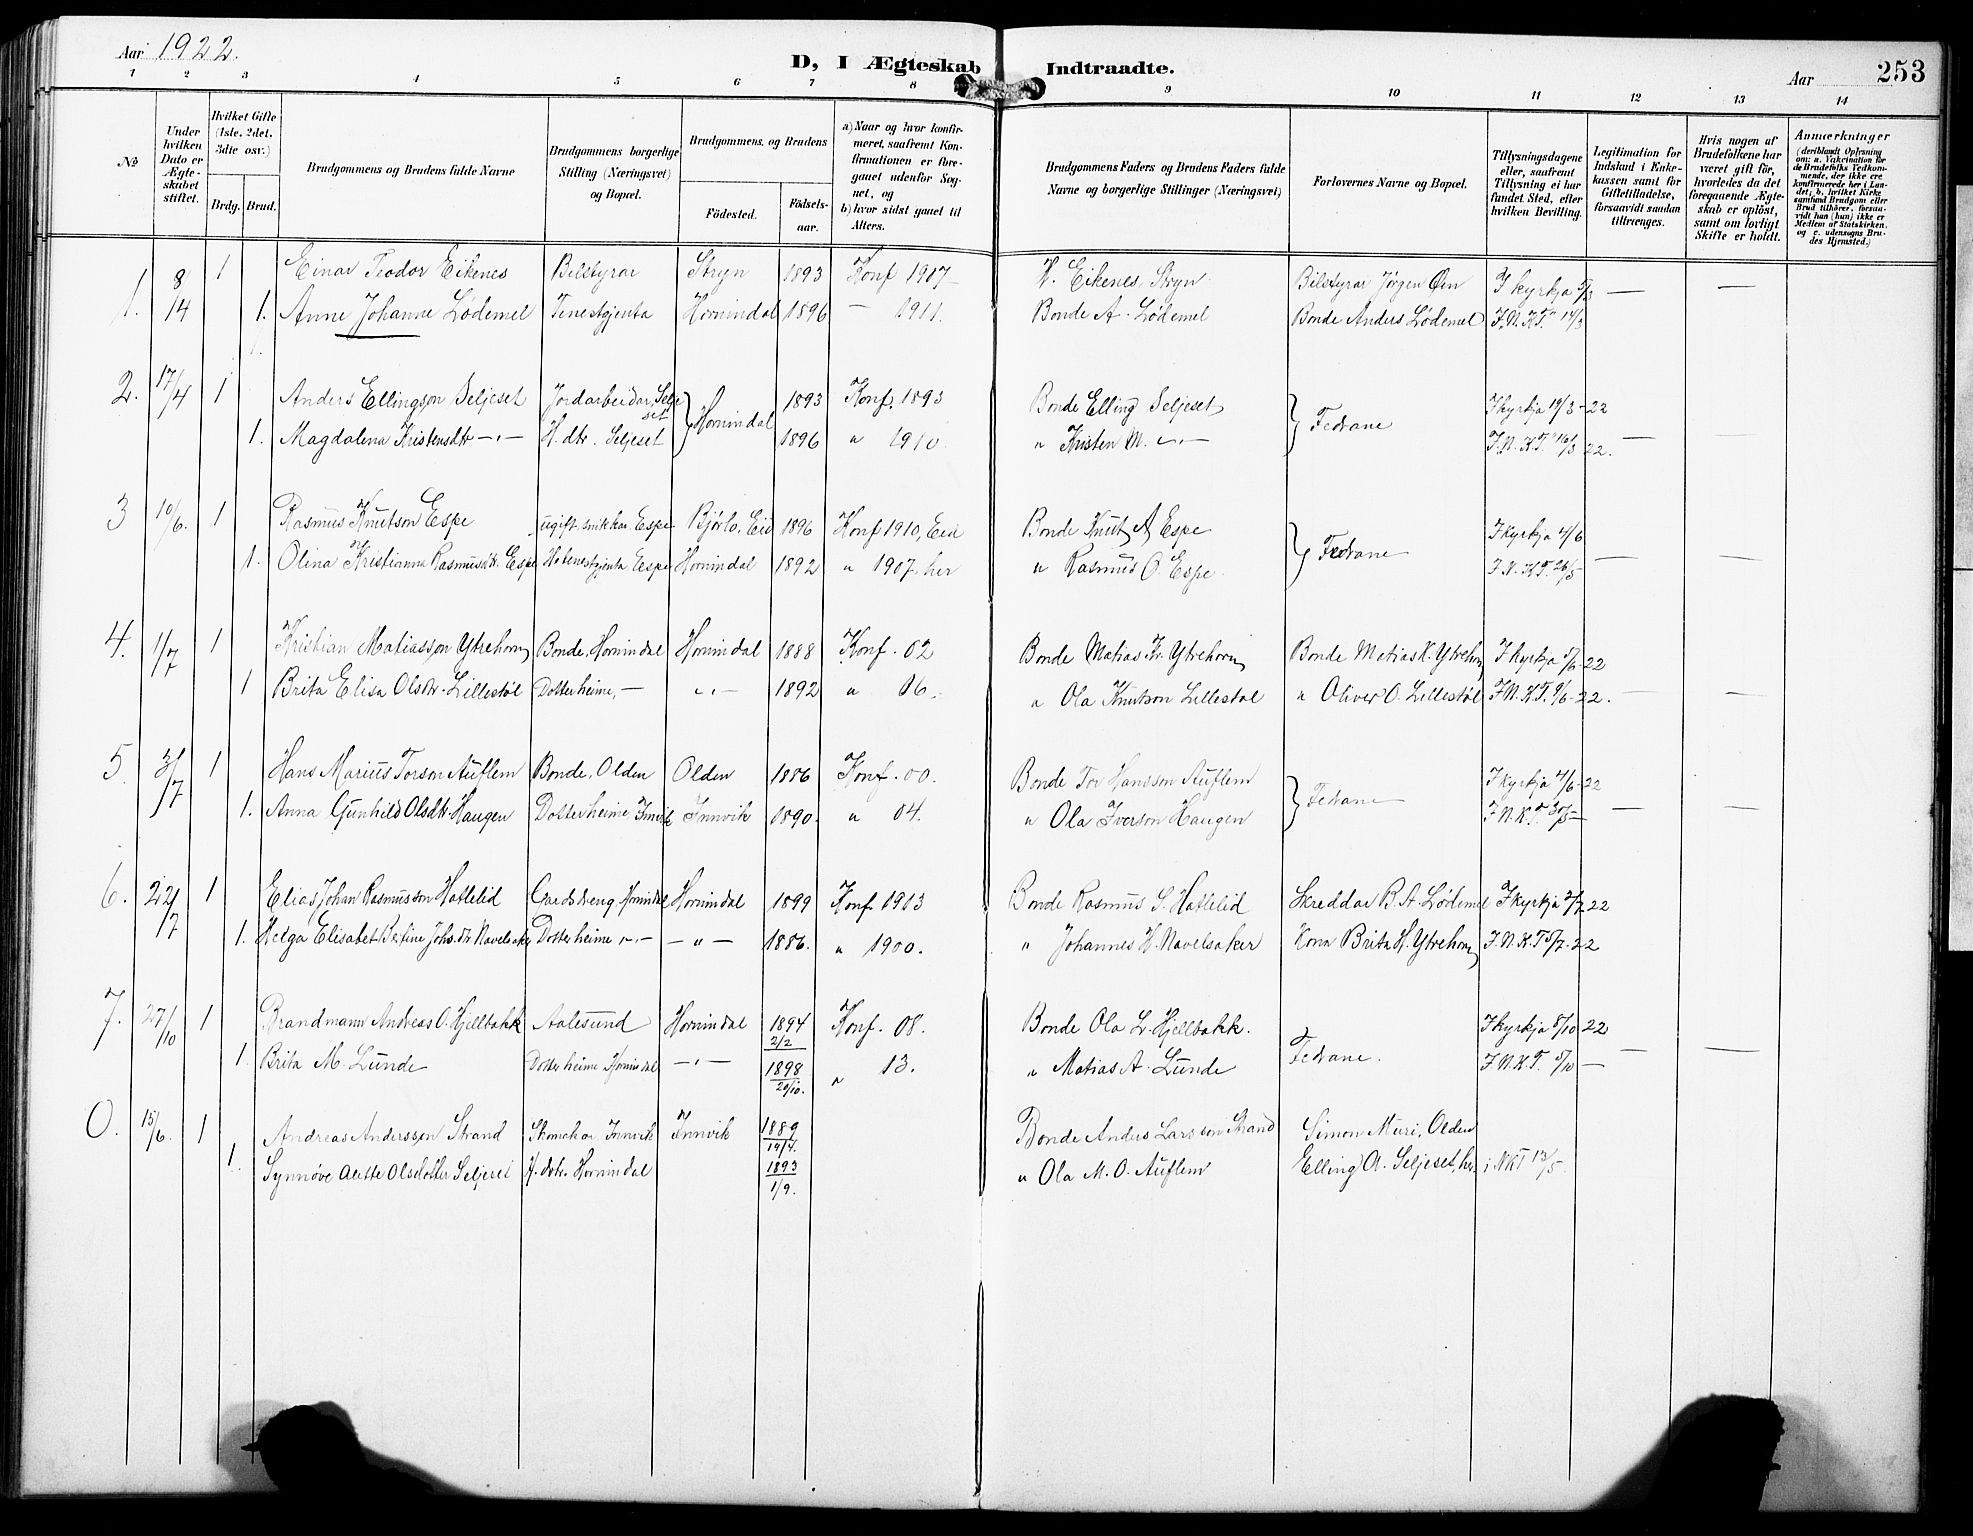 Aar 1922.
D, I Ægteskab Indtraadte.
Aar 253
1 2 3 4 5 6 7 8 9 10 11 12 13 14
No
Under hvilken Dato er Ægteskabet stiftet.
Hvilket Gifte (1ste, 2det, 3die osv.)
Brdg. Brud.
Brudgommens og Brudens fulde Navne
Brudgommens borgerlige Stilling (Næringsvei) og Bopæl.
Brudgommens, og Brudens
Fødested.
Fødselsaar.
a) Naar og hvor konfirmeret, saafremt Konfirmationen er foregaaet udenfor Sognet, og
b) hvor sidst gaaet til Alters.
Brudgommens Faders og Brudens Faders fulde Navne og borgerlige Stillinger (Næringsvei)
Forlovernes Navne og Bopæl.
Tillysningsdagene eller, saafremt Tillysning ei har fundet Sted, efter hvilken Bevilling.
Legitimation for Indskud i Enkekassen samt for Giftetilladelse, forsaavidt saadan tiltrænges.
Hvis nogen af Brudefolkene har været gift før, hvorledes da det foregaaende Ægteskab er opløst, samt om lovligt Skifte er holdt.
Anmærkninger
(deriblandt Oplysning om: a. Vakcination for de Brudefolks Vedkommende, der ikke ere konfirmerede her i Landet; b. hvilket Kirkesamfund Brudgom eller Brud tilhører, forsaavidt han (hun) ikke er Medlem af Statskirken, og c. udensogns Brudes Hjemsted.)
1. 8/14 1 Einar Teodor Eikenes Bilstyrar Stryn 1893 Konf 1907 Eikenes, Stryn Bilstyrar Jørgen Øen I kyrkja 5/3 — —
1. Anne Johanne Lødemel Tenestgjenta Hornindal 1896 — 1911. Bonde A. Lødemel Bonde Anders Lødemel I N. K. T. 14/3
2. 17/4 1 Anders Ellingson Seljeset Jordarbeidar, Seljeset Hornindal 1893 Konf. 1893 Bonde Elling Seljeset Fedrane I kyrkja 19/3-22
1. Magdalena Kristensdtr —"— H. dtr. Seljeset 1896 " 1910 " Kristen M. —"— I. N. K. T. 16/3 22. — —
3 10/6. 1 Rasmus Knutson Espe ugift snikkar Espe Bjørlo, Eid 1896 Konf 1910, Eid Bonde Knut A Espe Fedrane I kyrkja 4/6
1. Olina Kristianna Rasmusdtr. Espe Espe Hornindal 1892 " 1907. her " Rasmus O. Espe I N. K T. 26/5 — —
4. 1/7 1 Kristian Matiasson Ytrehorn Bonde, Hornindal Hornindal 1888 Konf. 02 Bonde Matias Kr. Ytrehorn Bonde Matias K. Ytrehorn I kyrkja 5/6-22
1 Brita Elisa Olsdtr. Lillestøl Dotter heime, — "— 1892 " 06. " Ola Knutson Lillestøl " Oliver O. Lillestøl I N. K. T. 9/6-22. — —
5. 3/7 1 Hans Marius Torson Auflem Bonde, Olden Olden 1886 Konf. 00. Bonde Tor Hansson Auflem Fedrane I kyrkja 4/6-22
1. Anna Gunhild Olsdtr. Haugen Dotter heime, Innvik Innvik 1890. " 04. " Ola Iverson Haugen I. N. K. T. 30/5 — — —
6. 22/7 1 Elias Johan Rasmusson Hatlelid Gardsdreng, Hornindal Hornindal 1899 Konf. 1913 Bonde Rasmus S. Hatlelid Skreddar B. A. Lødemel I kyrkja 2/7 22
1. Helga Elisabet Bertine Johs.dtr. Navelsaker Dotter heime —"— —"— 1886. " 1900. " Johannes H. Navelsaker Kona Brita H. Ytrehorn I. N. K. T 5/7-22
7. 27/10 1 Brandmann Andreas O. Hjellbakk Aalesund Hornindal 1894 2/2 Konf. 08. Bonde Ola L. Hjellbakk. Fedrane. I kyrkja 8/10 22
1. Brita M. Lunde Dotter heime Hornindal —"— 1898 20/10. " 13. " Matias A. Lunde I. N. K. T. 5/10 — — —
0. 15/6. 1 Andreas Anderssen Strand Skomakar, Innvik Innvik 1889 14/4. Bonde Anders Larsson Strand Simon Muri, Olden
1. Synnøve Alette Olsdotter Seljeset H. dtr. Hornindal 1893 1/9. " Ola M. O. Auflem Elling A. Seljeset, her. i NKT 13/5.